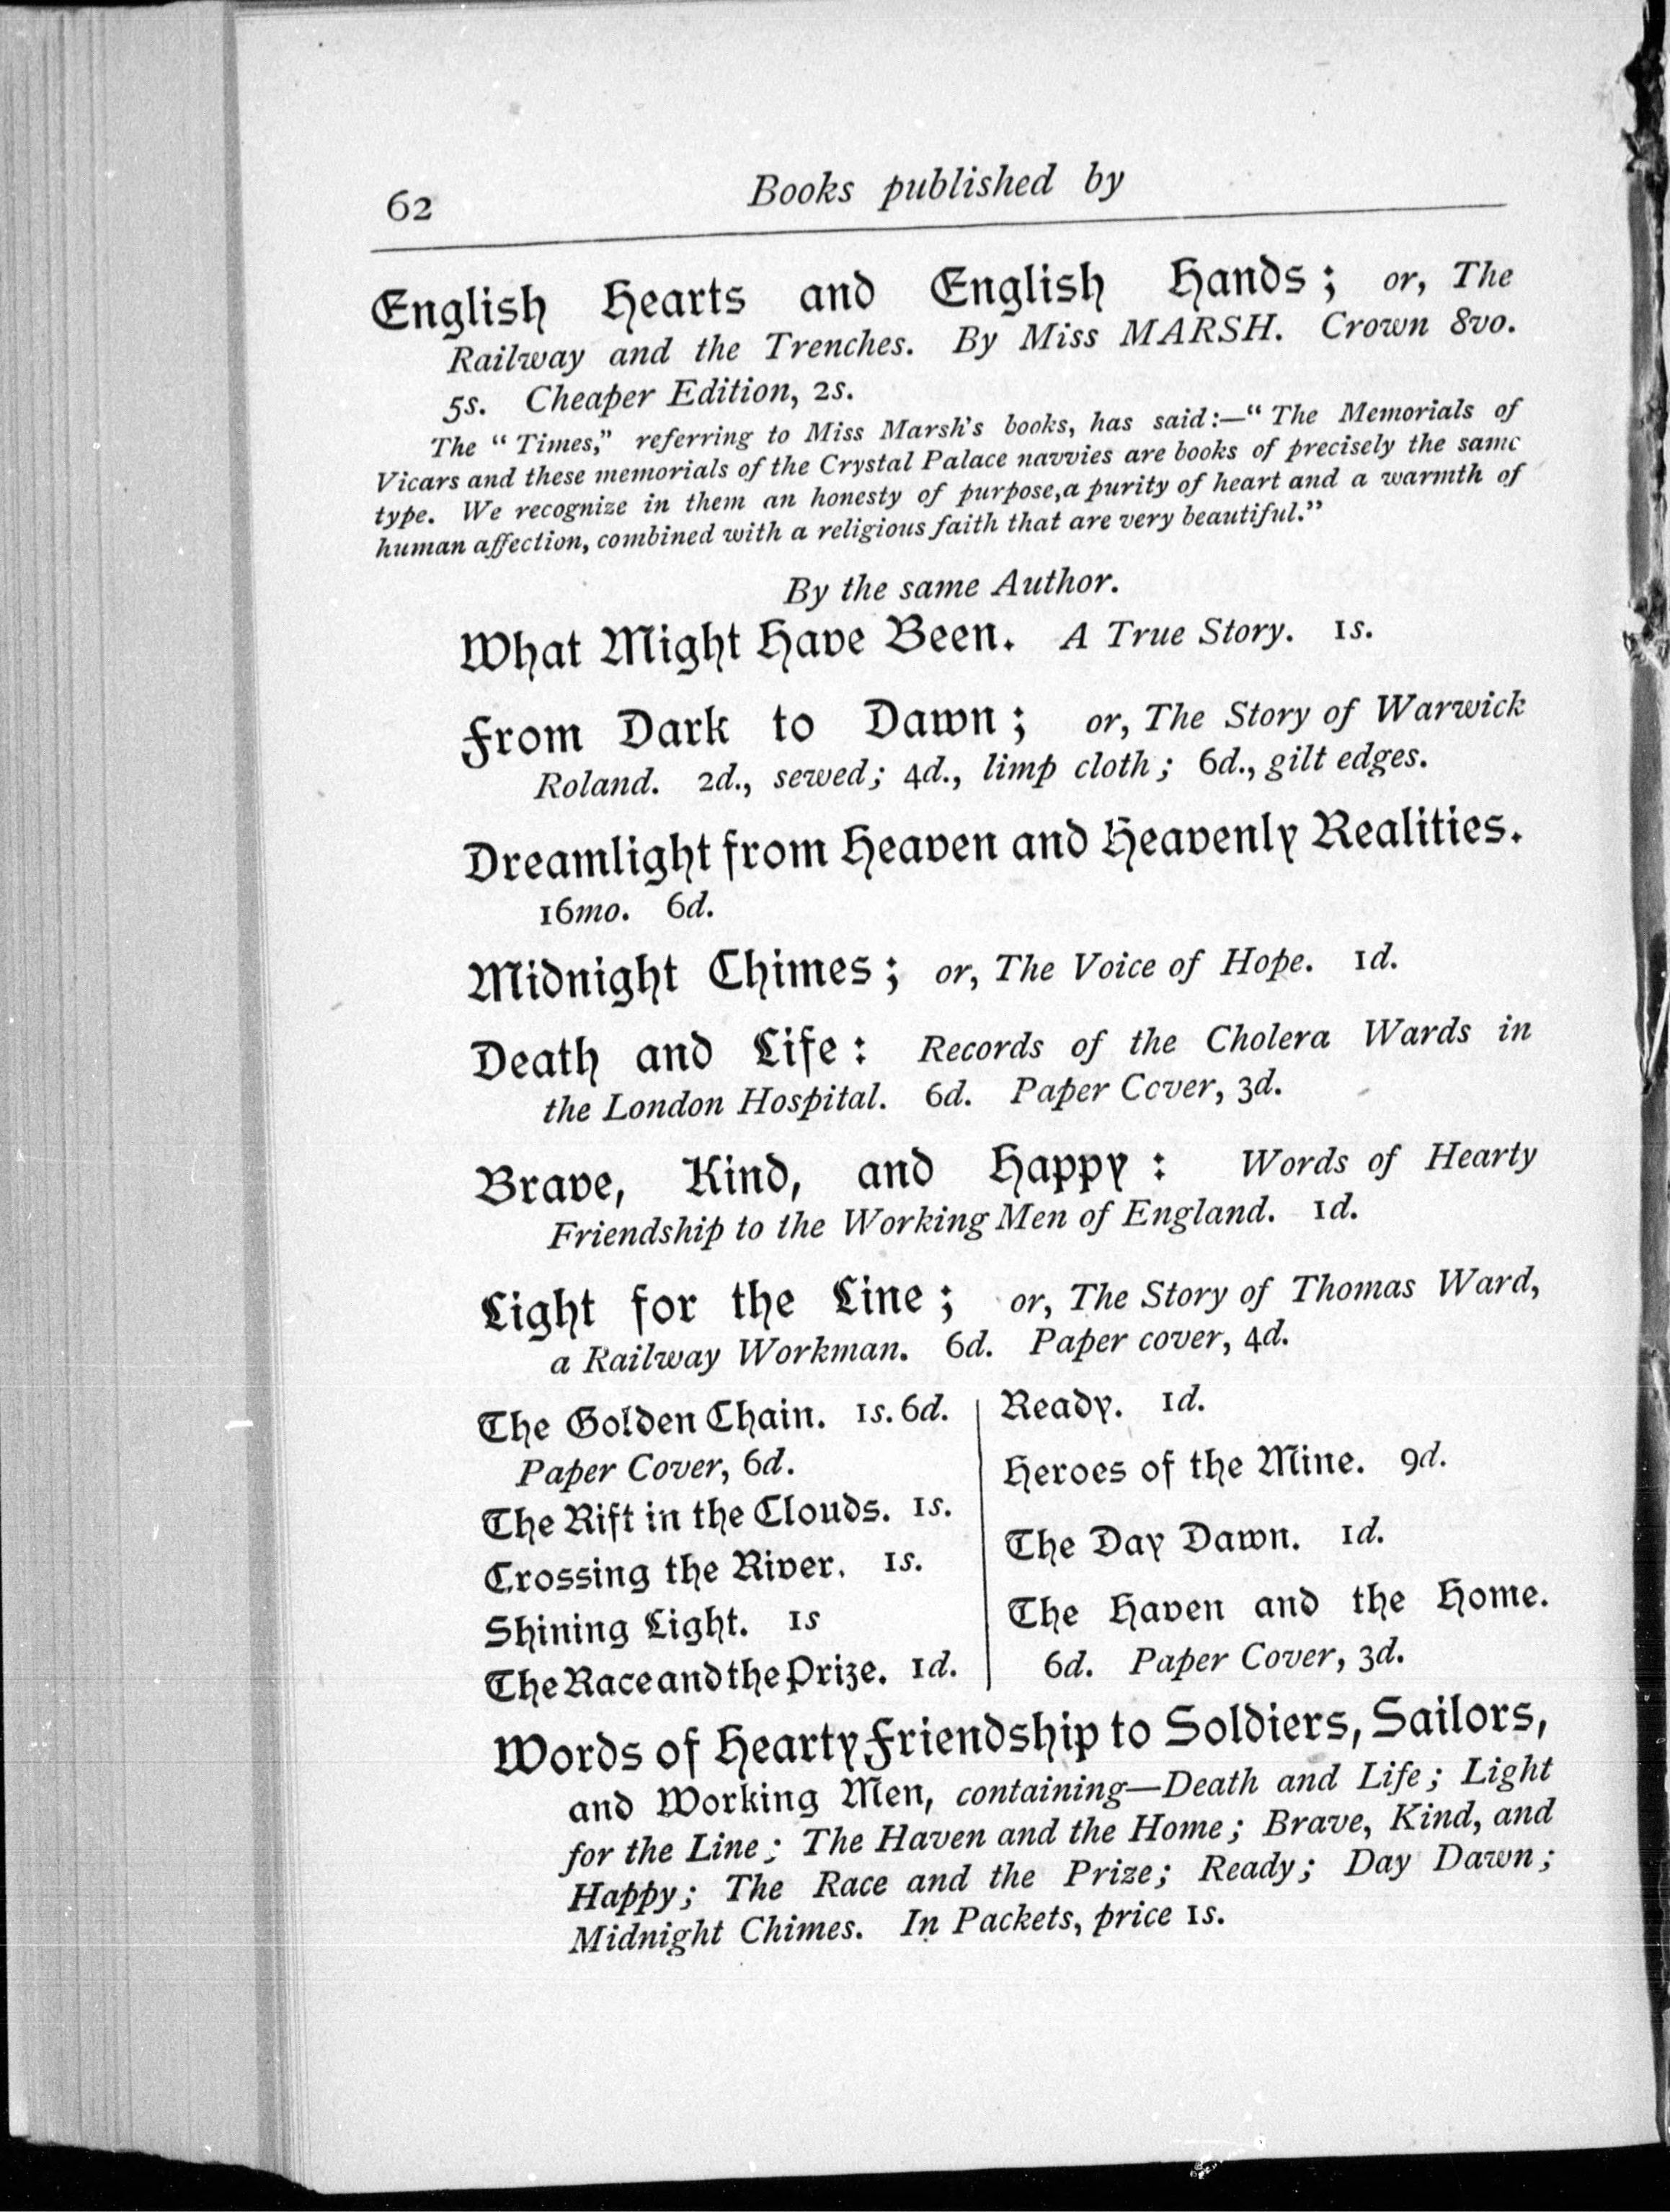 62
Books published by
English Hearts and English Hands; or, The
Railway and the Trenches. By Miss MARSH. Crown 8vo.
5s. Cheaper Edition, 2s.
The "Times," referring to Miss Marsh's books, has said:—"The Memorials of
Vicars and these memorials of the Crystal Palace navvies are books of precisely the same
type. We recognize in them an honesty of purpose, a purity of heart and a warmth of
human affection, combined with a religious faith that are very beautiful."
By the same Author.
What Might Have Been. A True Story. 1s.
From Dark to Dawn; or, The Story of Warwick
Roland. 2d., sewed; 4d., limp cloth; 6d., gilt edges.
Dreamlight from Heaven and Heavenly Realities.
16mo. 6d.
Midnight Chimes; or, The Voice of Hope. 1d.
Death and Life: Records of the Cholera Wards in
the London Hospital. 6d. Paper Ccver, 3d.
Brave, Kind, and Happy: Words of Hearty
Friendship to the Working Men of England. 1d.
Light for the Line; or, The Story of Thomas Ward,
a Railway Workman. 6d. Paper cover, 4d.
The Golden Chain. 1s. 6d.
Paper Cover, 6d.
The Rift in the Clouds. 1s.
Crossing the River. 1s.
Shining Light. 1s
The Race and the Prize. 1d.
Ready. 1d.
Heroes of the Mine. 9d.
The Day Dawn. 1d.
The Haven and the Home.
6d. Paper Cover, 3d.
Words of Hearty Friendship to Soldiers, Sailors,
and Working Men, containing—Death and Life; Light
for the Line; The Haven and the Home; Brave, Kind, and
Happy; The Race and the Prize; Ready; Day Dawn;
Midnight Chimes. In Packets, price 1s.